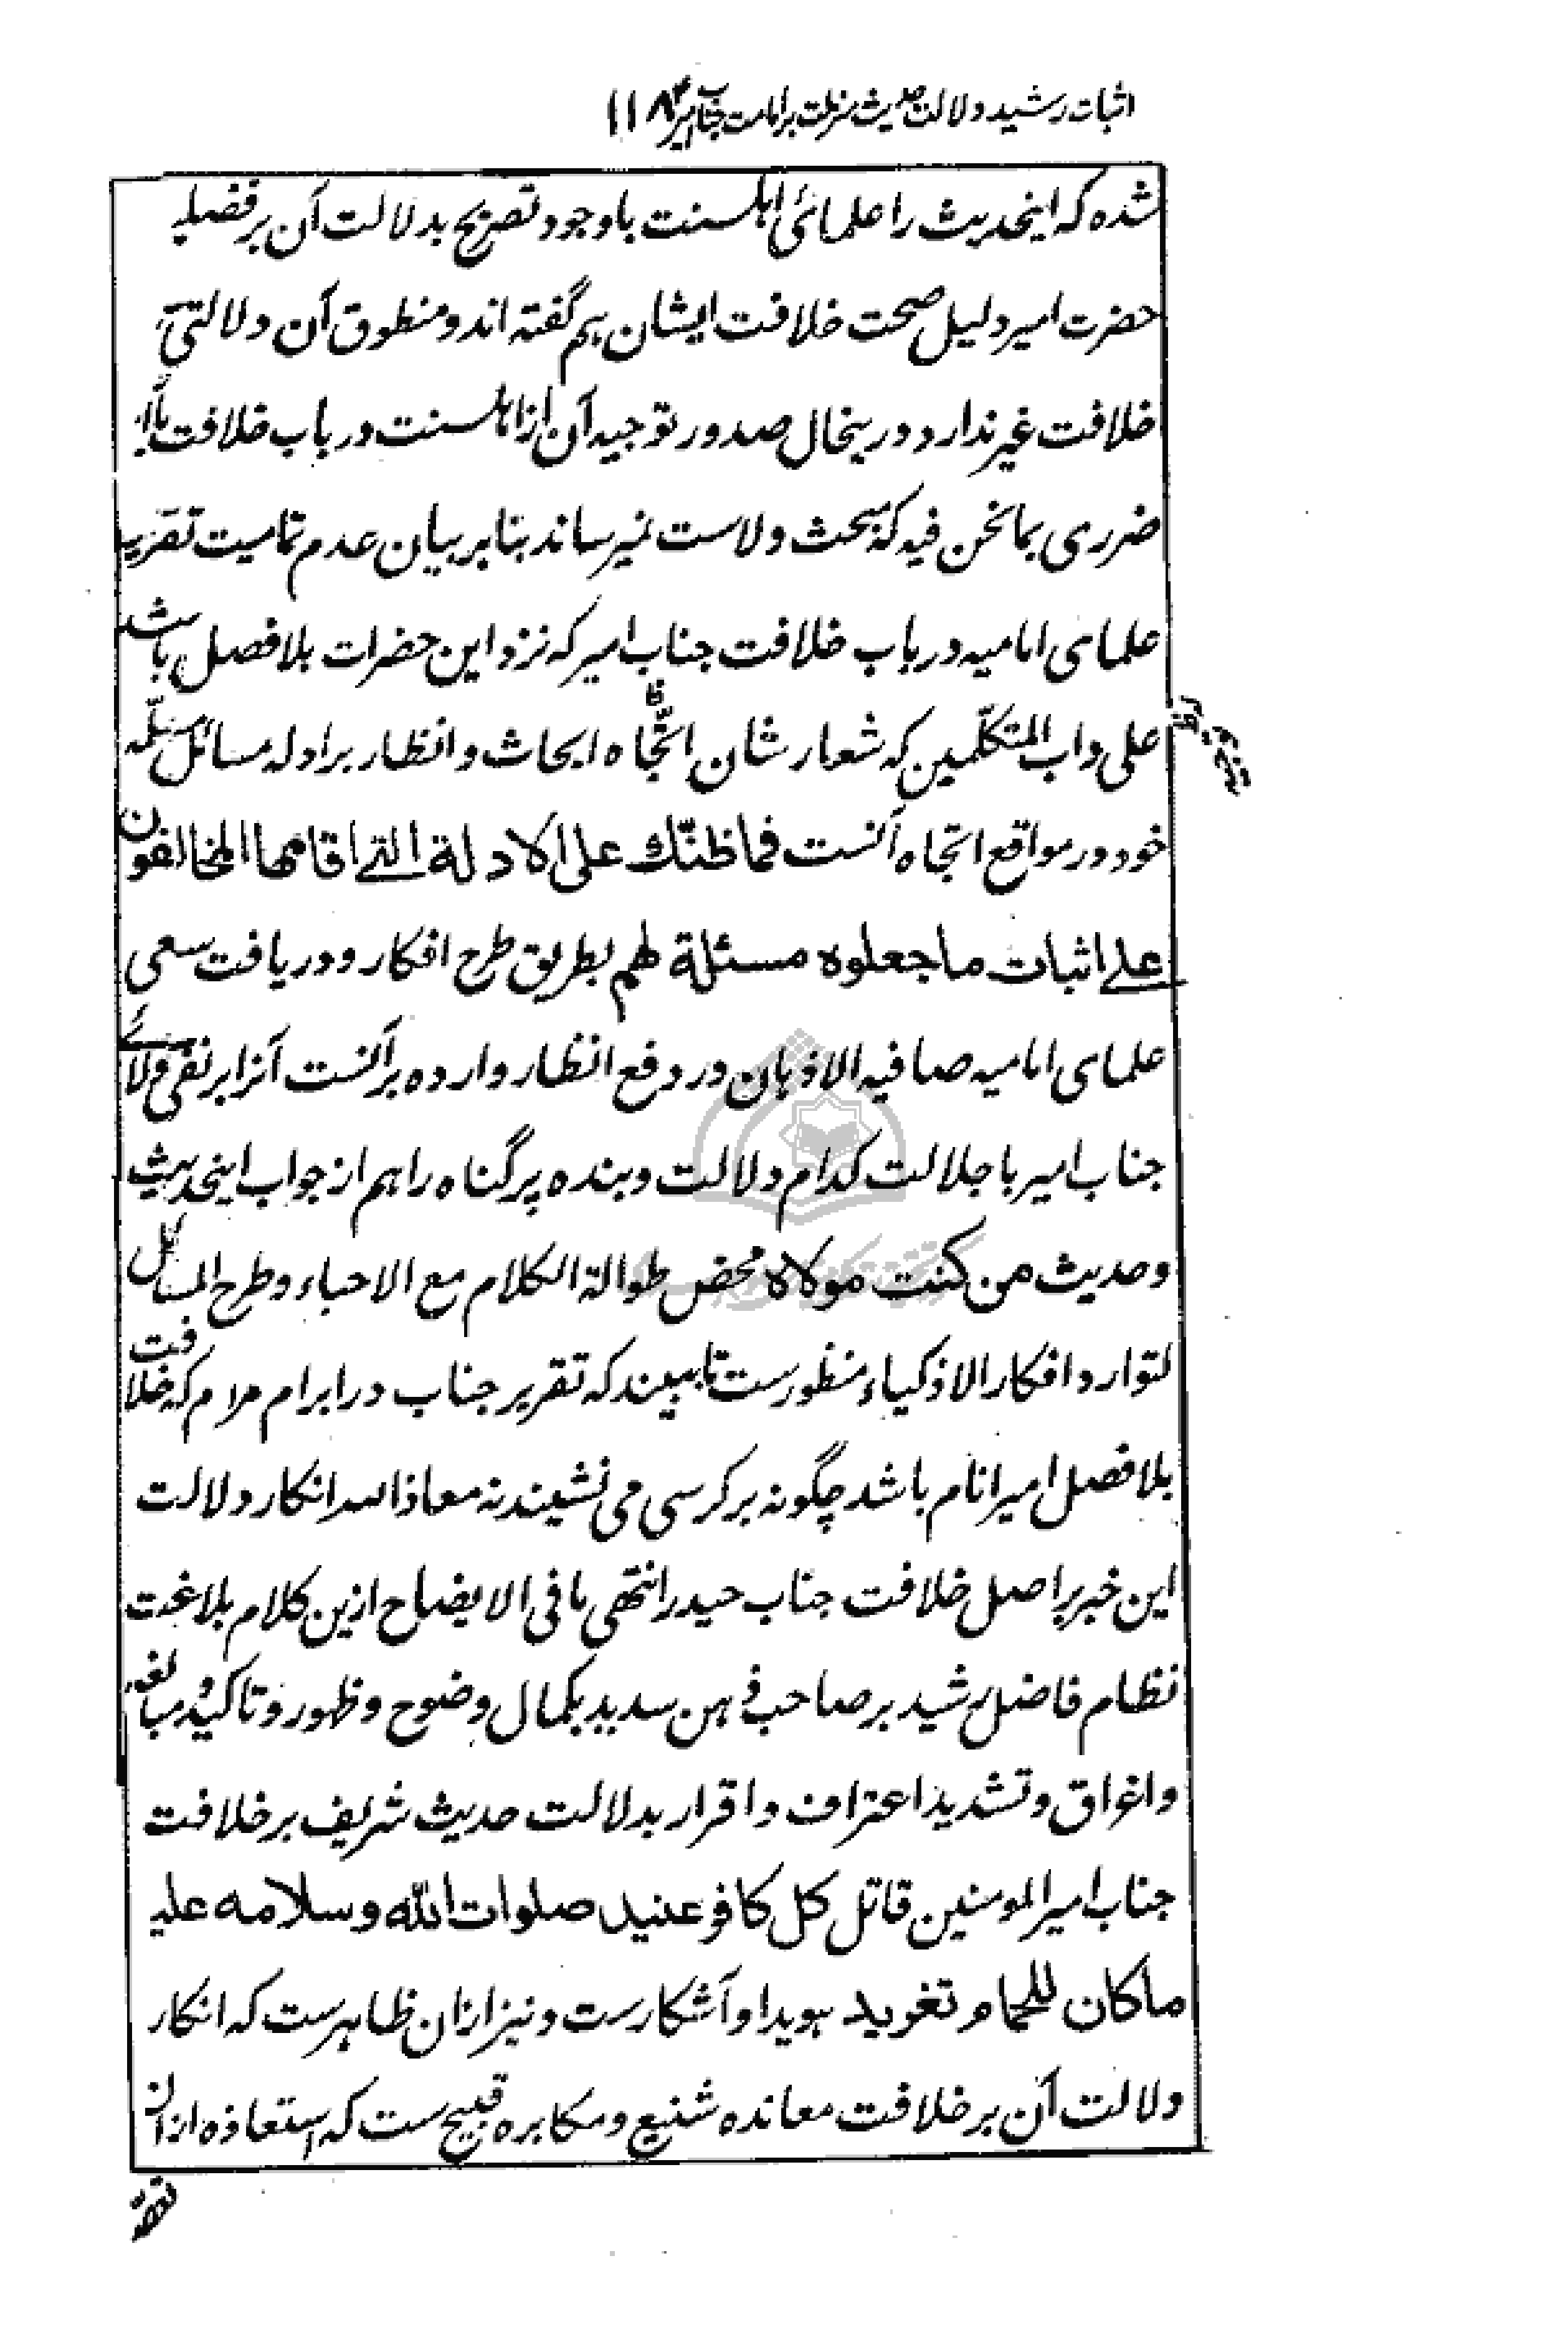 اثبات رشید دلالت حدیث منزلت بر امامت جناب امیر ۱۱۸۴
شده که اینحدیث را علمائی اهلسنت باوجود تصریح بدلالت آن بر فضیله
حضرت امیر دلیل صحت خلافت ایشان هم گفته اند و منطوق آن دلالتی بر
خلافت غیر ندارد و درینحال صدور توجیه آن از اهلسنت در باب خلافت
ضرری بمانحن فیه که مبحث ولاست نمیرساند بنا بر بیان عدم تمامیت تقریر
علمای امامیه در باب خلافت جناب امیر که نزد این حضرات بلا فصل باشد
علی داب المتکلّمین که شعار شان اتّجاه ابحاث و انظار بر ادله مسائل مسلّمه
خود در مواقع اتجاه آنست فماظنّك على الادلة التي اقامها المخالفون
على اثبات ماجعلوه مسئلة لهم بطریق طرح افکار و دریافت سعی
علمای امامیه صافیه الاذهان در دفع انظار وارده بر آنست آنرا بر نفی ولای
جناب امیر با جلالت کدام دلالت و بنده پرگناه را هم از جواب اینحدیث
و حدیث من كنت مولاه محض طوالة الکلام مع الاحباء و طرح المسائل
لتوارد افکار الاذکیاء منظورست تا ببیند که تقریر جناب در ابرام مرام که خلافت
بلا فصل امیر انام باشد چگونه بر کرسی می نشیند نه معاذ الله انکار دلالت
این خبر بر اصل خلافت جناب حیدر انتهی ما فی الایضاح ازین کلام بلاغت
نظام فاضل رشید بر صاحب ذهن سدید بکمال وضوح و ظهور و تاکید و مبالغه
و اغراق و تشدید اعتراف و اقرار بدلالت حدیث شریف بر خلافت
جناب امیر المومنین قاتل کل کافر عنید صلوات الله وسلامه علیه
ماكان للحمام تغريد هویدا و آشکارست و نیز ازان ظاهرست که انکار
دلالت آن بر خلافت معانده شنیع و مکابره قبیح ست که استعاذه ازان